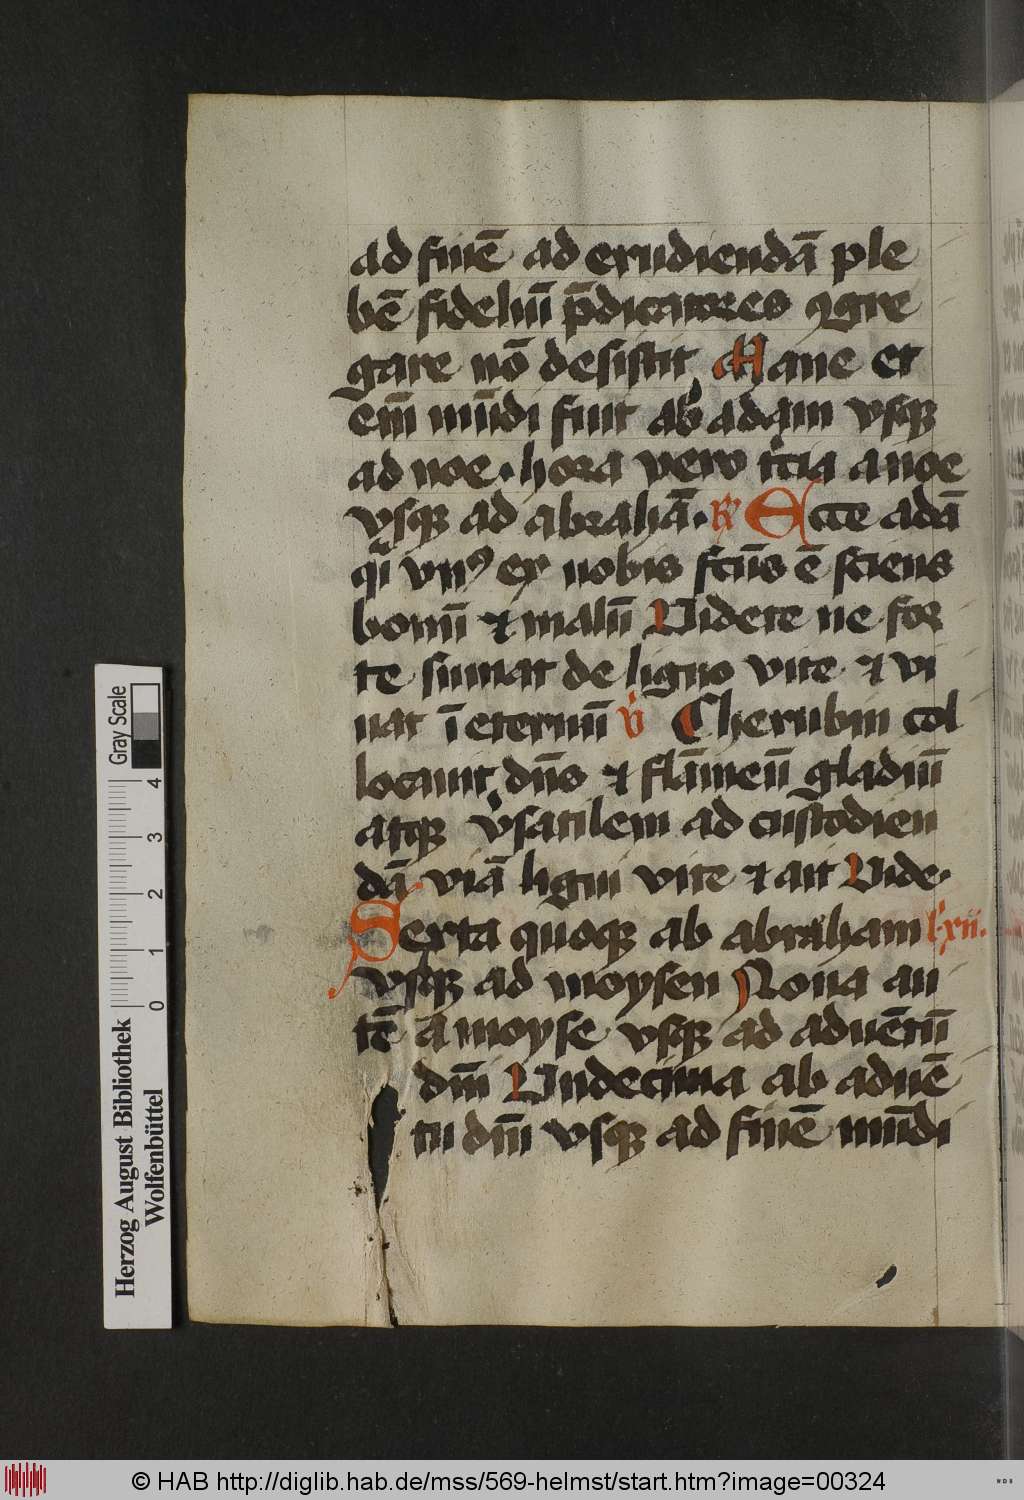 ad finē ad erudiendā ple
bē fideliū p̄dicatores ꝯgre
gare nō desistit Mane et
em̄ mūdi fuit ab adam vsqꝫ
ad noe · hora vero t̓cia a noe
vsqꝫ ad abrahā · R̓ Ecce adā
q̓i vnꝰ ex nobis fc̄us ē sciens
bonū ⁊ malū Videte ne for
te sumat de ligno vite ⁊ vi
uat ī eternū v̓ Cherubin col
locauit dn̄s ⁊ flāmeū gladiū
atqꝫ v̓satilem ad custodien
dā viā ligni vite ⁊ ait Vide ·
Sexta quoqꝫ ab abraham l̓ xii ·
vsqꝫ ad moysen Nona au
tē a moyse vsqꝫ ad aduētū
dn̄i Vndecima ab aduē
tu dn̄i vsqꝫ ad finē mūdi
Gray Scale
4
3
2
1
0
Herzog August Bibliothek
Wolfenbüttel
© HAB http://diglib.hab.de/mss/569-helmst/start.htm?image=00324